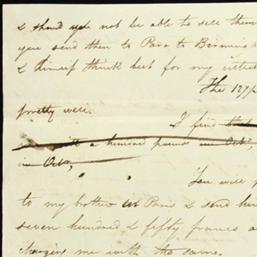 & should you not be able to sell them
you send them to Para to Bermuda
& himself think best for my interest
The 127/
pretty well.
I find that
with a hundred pounds in Octr,
in Octr,
You will p
to my brother at Paris & send him
seven hundred & fifty francs a
charging me with the same.